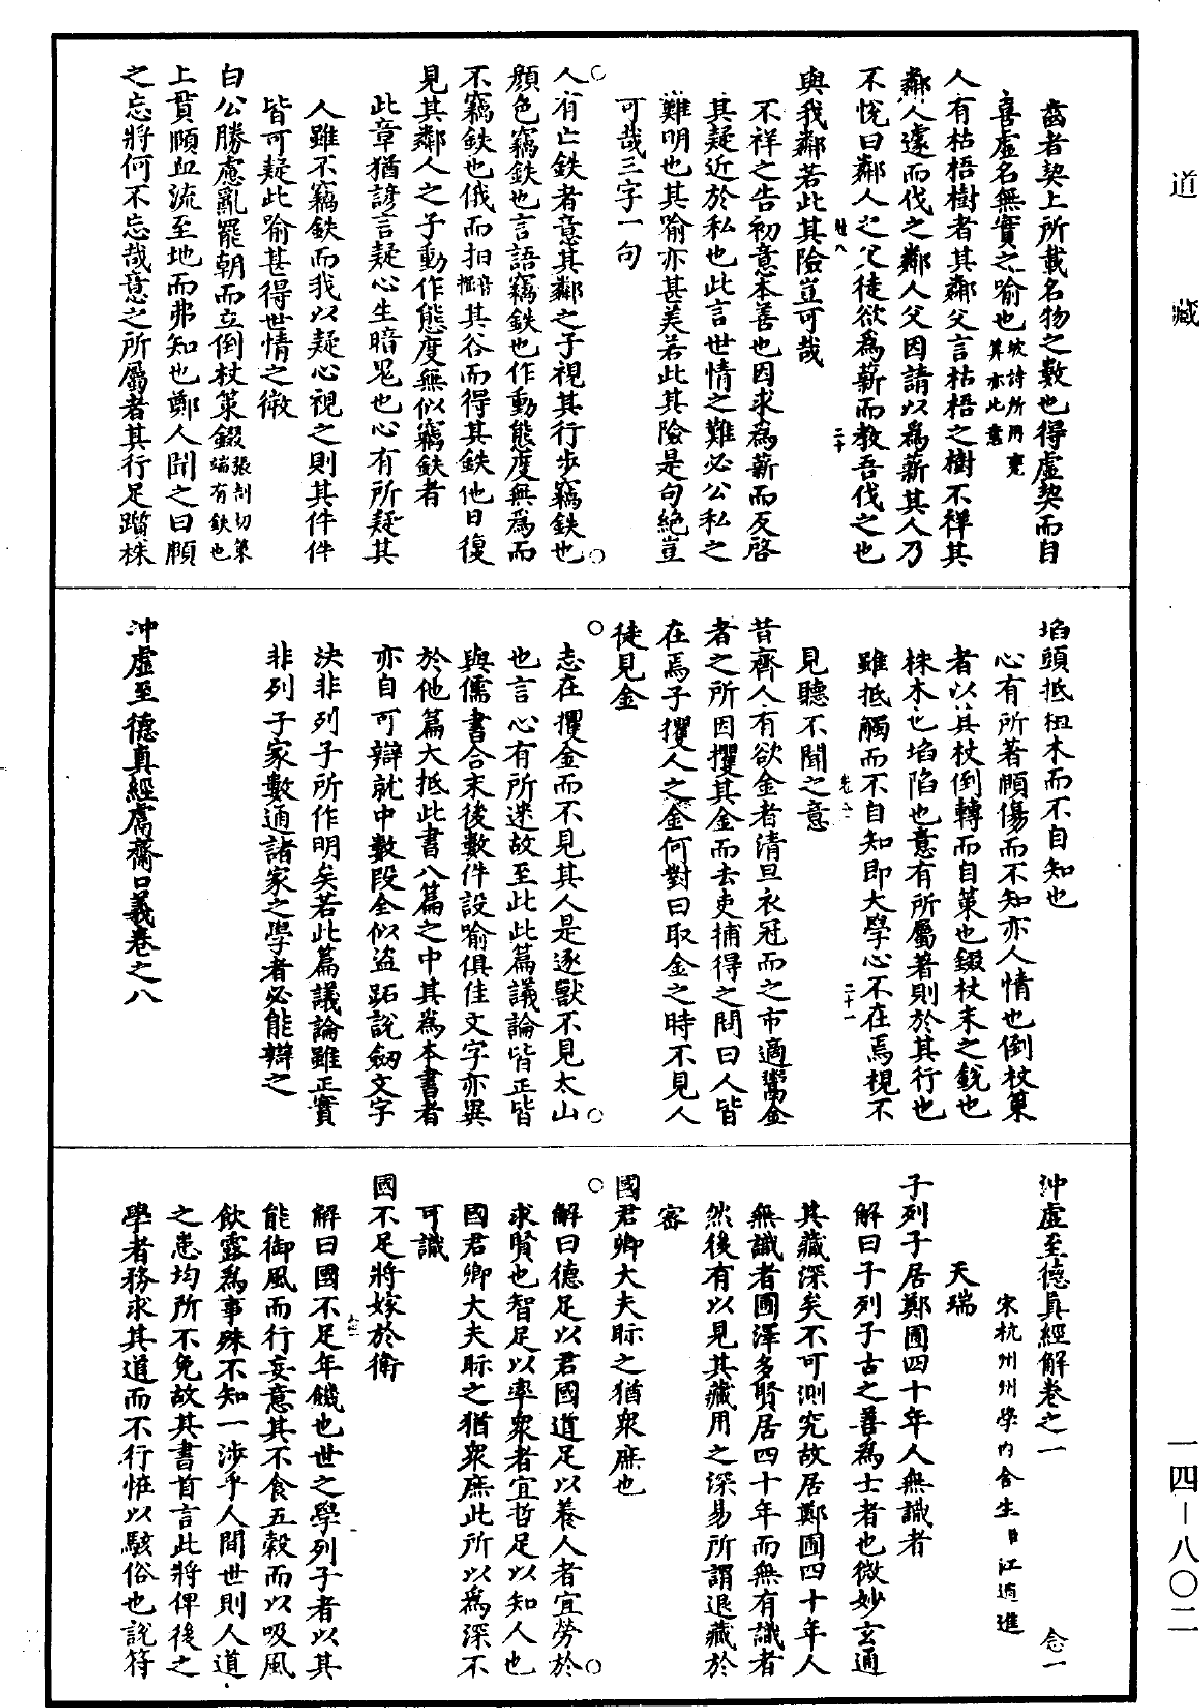 道藏
齒者契上所載名物之數也得虛契而自
喜虛名無實之喻也坡詩所用甕算亦此意
人有枯梧樹者其鄰父言枯梧之樹不祥其
鄰人遽而伐之鄰人父因請以為薪其人乃
不悅曰鄰人之父徒欲為薪而教吾伐之也
與我鄰若此其險豈可哉
不祥之告初意本善也因求為薪而反啓
其疑近於私也此言世情之難必公私之
難明也其喻亦甚美若此其險是句絕豈
可哉三字一句
人有亡鈇者意其鄰之子視其行步竊鈇也
顏色竊鈇也言語竊鈇也作動態度無為而
不竊鈇也俄而抇其谷而得其鈇他日復
見其鄰人之子動作態度無似竊鈇者
此章猶諺言疑心生暗鬼也心有所疑其
人雖不竊鈇而我以疑心視之則其件件
皆可疑此喻甚得世情之微
白公勝慮亂罷朝而立倒杖策錣張劣切策端有鈇也
上貫頤血流至地而弗知也鄭人聞之曰頤
之忘將何不忘哉意之所屬著其行足躓株
埳頭抵植木而不自知也
心有所著頤傷而不知亦人情也倒杖策
者以其杖倒轉而自策也錣杖末之銳也
株木也埳陷也意有所屬著則於其行也
雖抵觸而不自知即大學心不在焉視不
見聽不聞之意
昔齊人有欲金者清旦衣冠而之市適鬻金
者之所因攫其金而去吏捕得之問曰人皆
在焉子攫人之金何對曰取金之時不見人
徒見金
志在攫金而不見其人是逐獸不見太山
也言心有所迷故至此此篇議論皆正皆
與儒書合末後數件設喻俱佳文字亦異
於他篇大抵此書八篇之中其為本書者
亦自可辯就中數段全似盜跖說劒文字
決非列子所作明矣若此篇議論雖正實
非列子家數通諸家之學者必能辯之
沖虛至德真經鬳齋口義卷之八
沖虛至德真經解卷之一 念一
宋杭州州學內舍生臣江遹進
天瑞
子列子居鄭圃四十年人無識者
解曰子列子古之善為士者也微妙玄通
其藏深矣不可測究故居鄭圃四十年人
無識者圃澤多賢居四十年而無有識者
然後有以見其藏用之深易所謂退藏於
密
國君卿大夫眎之猶衆庶也
解曰德足以君國道足以養人者宜勞於
求賢也智足以率衆者宜哲足以知人也
國君卿大夫眎之猶衆庶此所以為深不
可識
國不足將嫁於衛
解曰國不足年饑也世之學列子者以其
能御風而行妄意其不食五穀而以吸風
飲露為事殊不知一涉乎人間世則人道
之患均所不免故其書首言此將俾後之
學者務求其道而不行怪以駭俗也說符
一四—八〇二